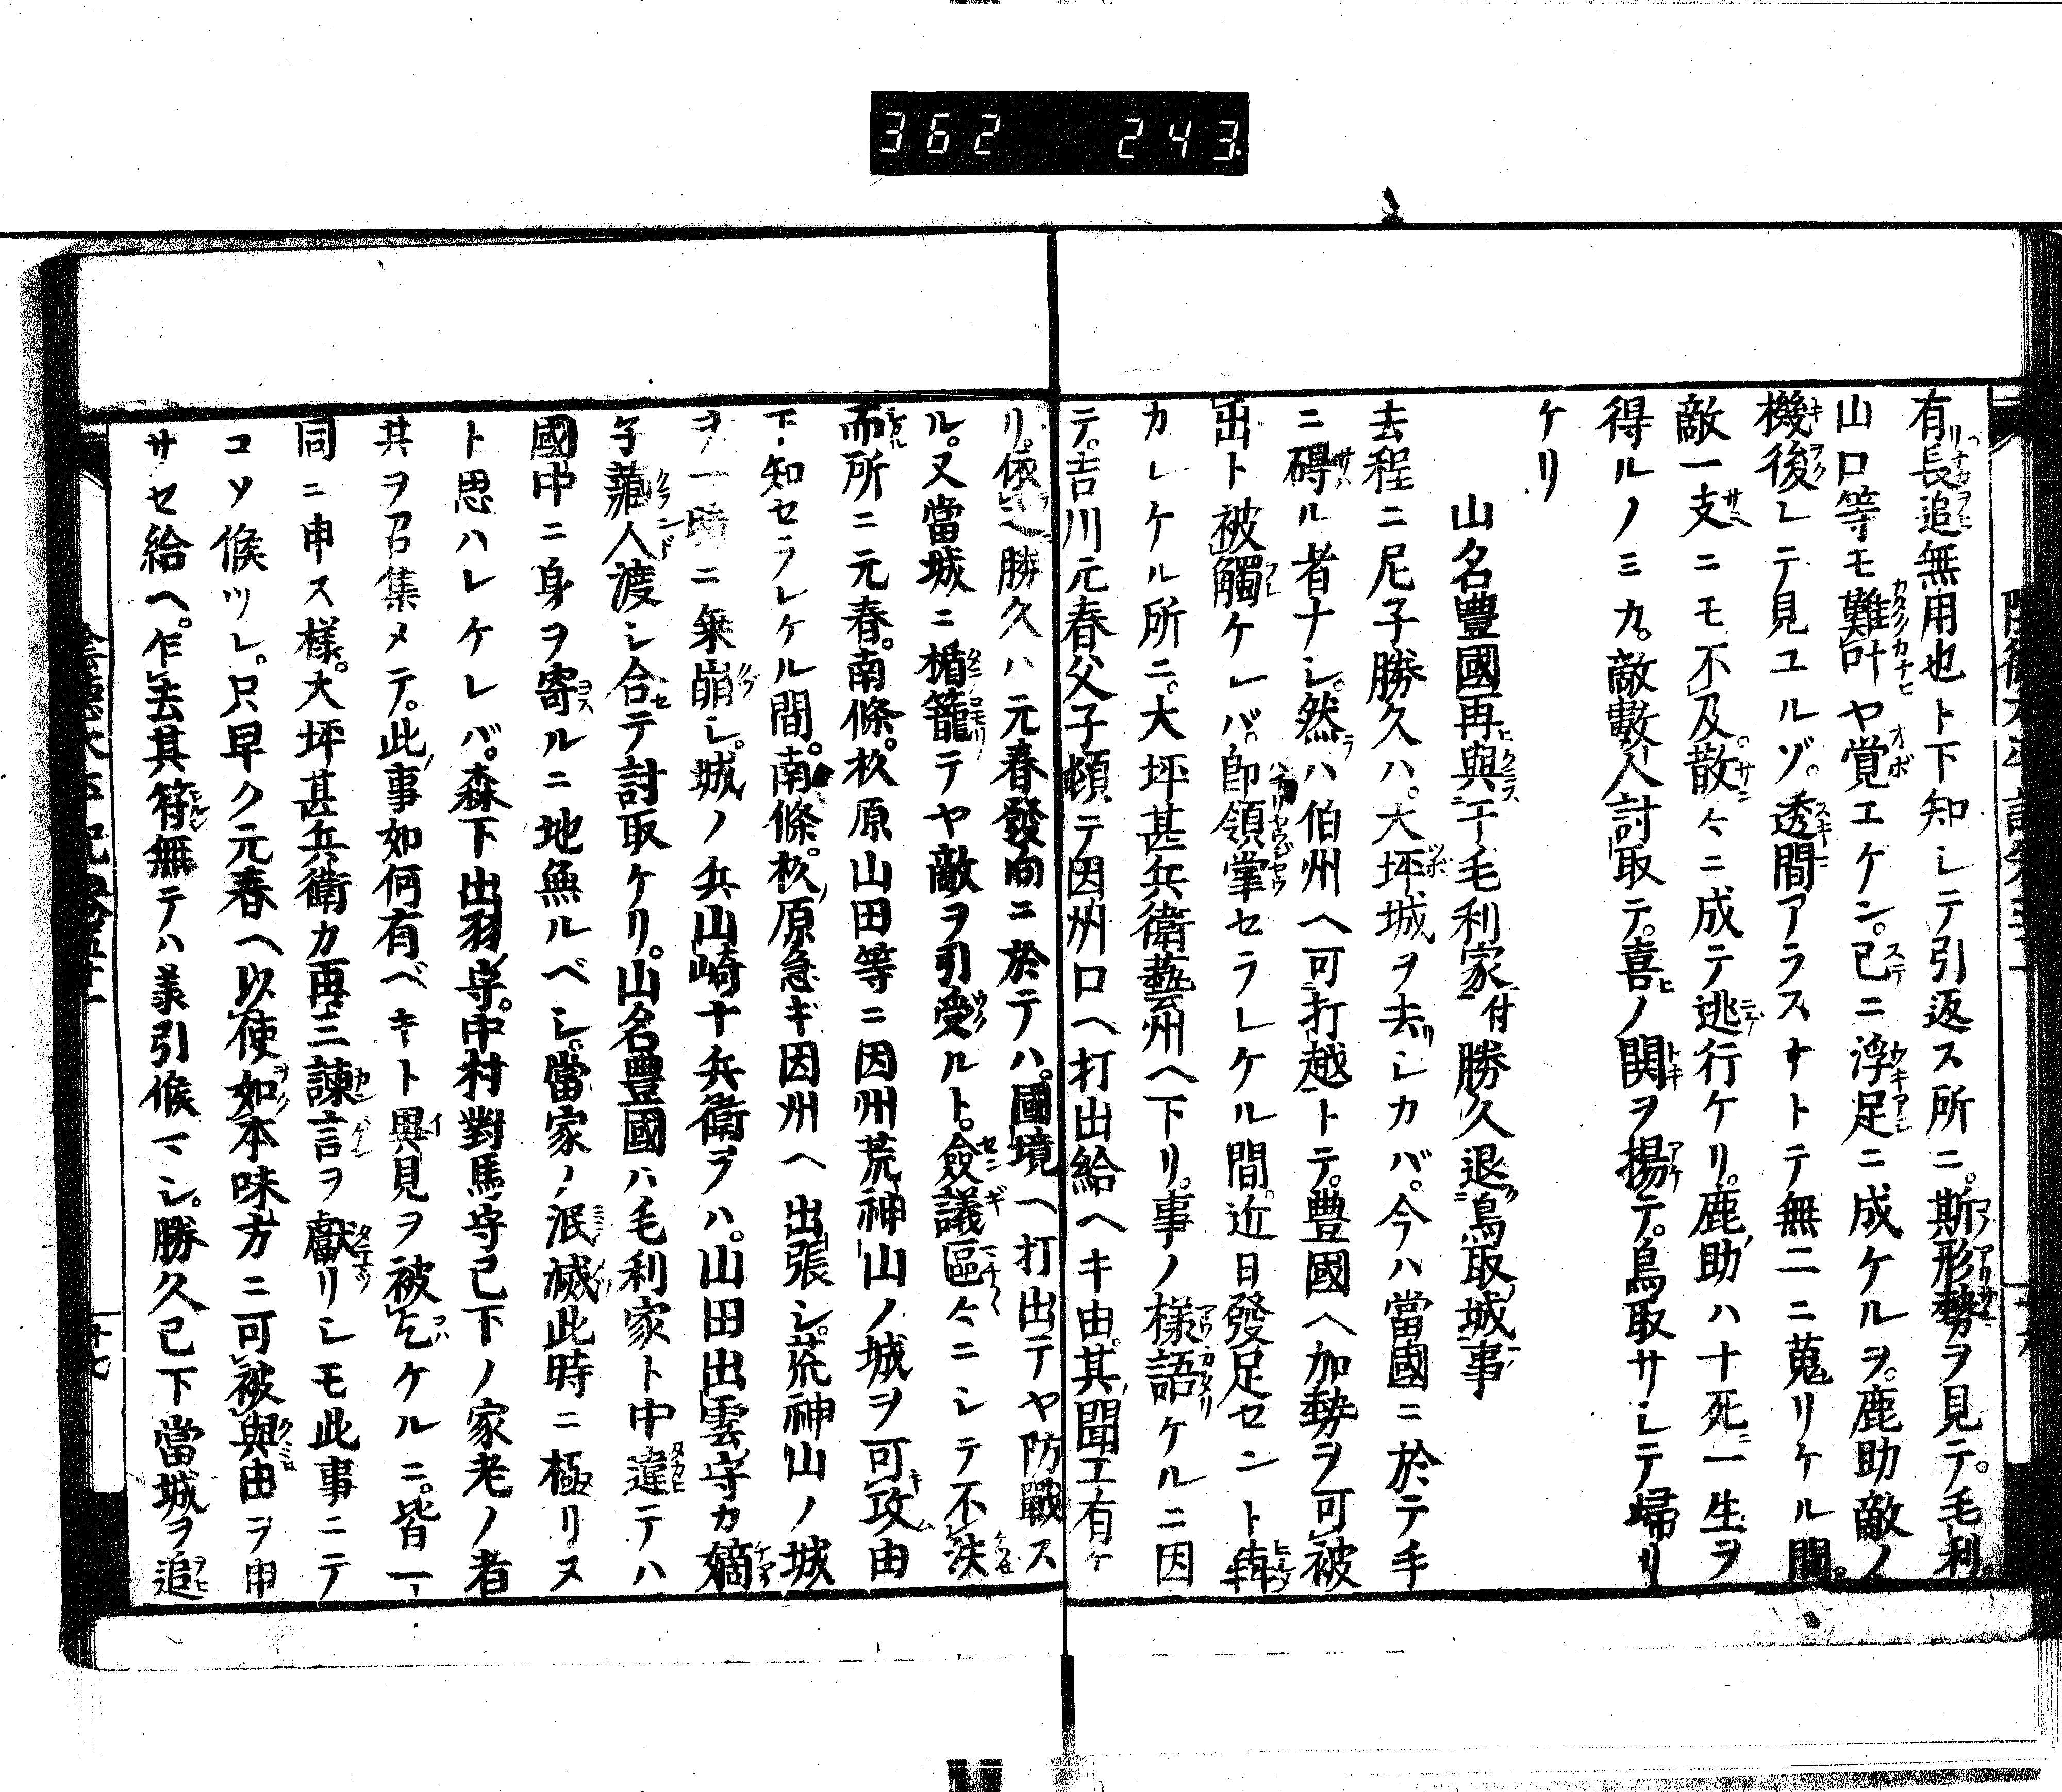 362 243
有長追無用也ト下知シテ引返ス所ニ。斯形勢ヲ見テ。毛利。
山口等モ難叶ヤ覚エケン。已ニ浮足ニ成ケルヲ。鹿助敵ノ
機後レテ見ユルゾ。透間アラスナトテ無二ニ蒐リケル間。
敵一支ニモ不及。散々ニ成テ逃行ケリ。鹿助ハ十死一生ヲ
得ルノミカ。敵數人討取テ。喜ノ関ヲ揚テ。鳥取サシテ帰リ
ケリ
山名豊國再與于毛利家付勝久退鳥取城事
去程ニ尼子勝久ハ。大坪城ヲ去シカバ。今ハ當國ニ於テ手
ニ碍ル者ナシ。然ハ伯州ヘ可打越トテ。豊國ヘ加勢ヲ可被
出ト被觸ケレバ。即領掌セラレケル間。近日發足セント犇
カレケル所ニ。大坪甚兵衛藝州ヘ下リ。事ノ様語ケルニ因
テ。吉川元春父子頓テ因州口ヘ打出給ヘキ由。其聞エ有ケ
リ。依之勝久ハ元春發向ニ於テハ。國境ヘ打出テヤ防戰ス
ル。又當城ニ楯籠テヤ敵ヲ引受ルト。僉議區々ニシテ不决
而所ニ元春。南條。杦原山田等ニ因州荒神山ノ城ヲ可攻由
下知セラレケル間。南條。杦原急ギ因州ヘ出張シ。荒神山ノ城
ヲ一時ニ乗崩シ。城ノ兵山崎十兵衛ヲハ。山田出雲守カ嫡
子藏人渡シ合テ討取ケリ。山名豊國ハ毛利家ト中違テハ
國中ニ身ヲ寄ルニ地無ルベシ。當家ノ泯滅此時ニ極リヌ
ト思ハレケレバ。森下出羽守。中村對馬守已下ノ家老ノ者
共ヲ召集メテ。此事如何有ベキト異見ヲ被乞ケルニ。皆一
同ニ申ス樣。大坪甚兵衛カ再三諫言ヲ獻リシモ此事ニテ
コソ候ツレ。只早ク元春ヘ以使如本味方ニ可被與由ヲ申
サセ給ヘ。乍去其符無テハ義引候マシ。勝久已下當城ヲ追